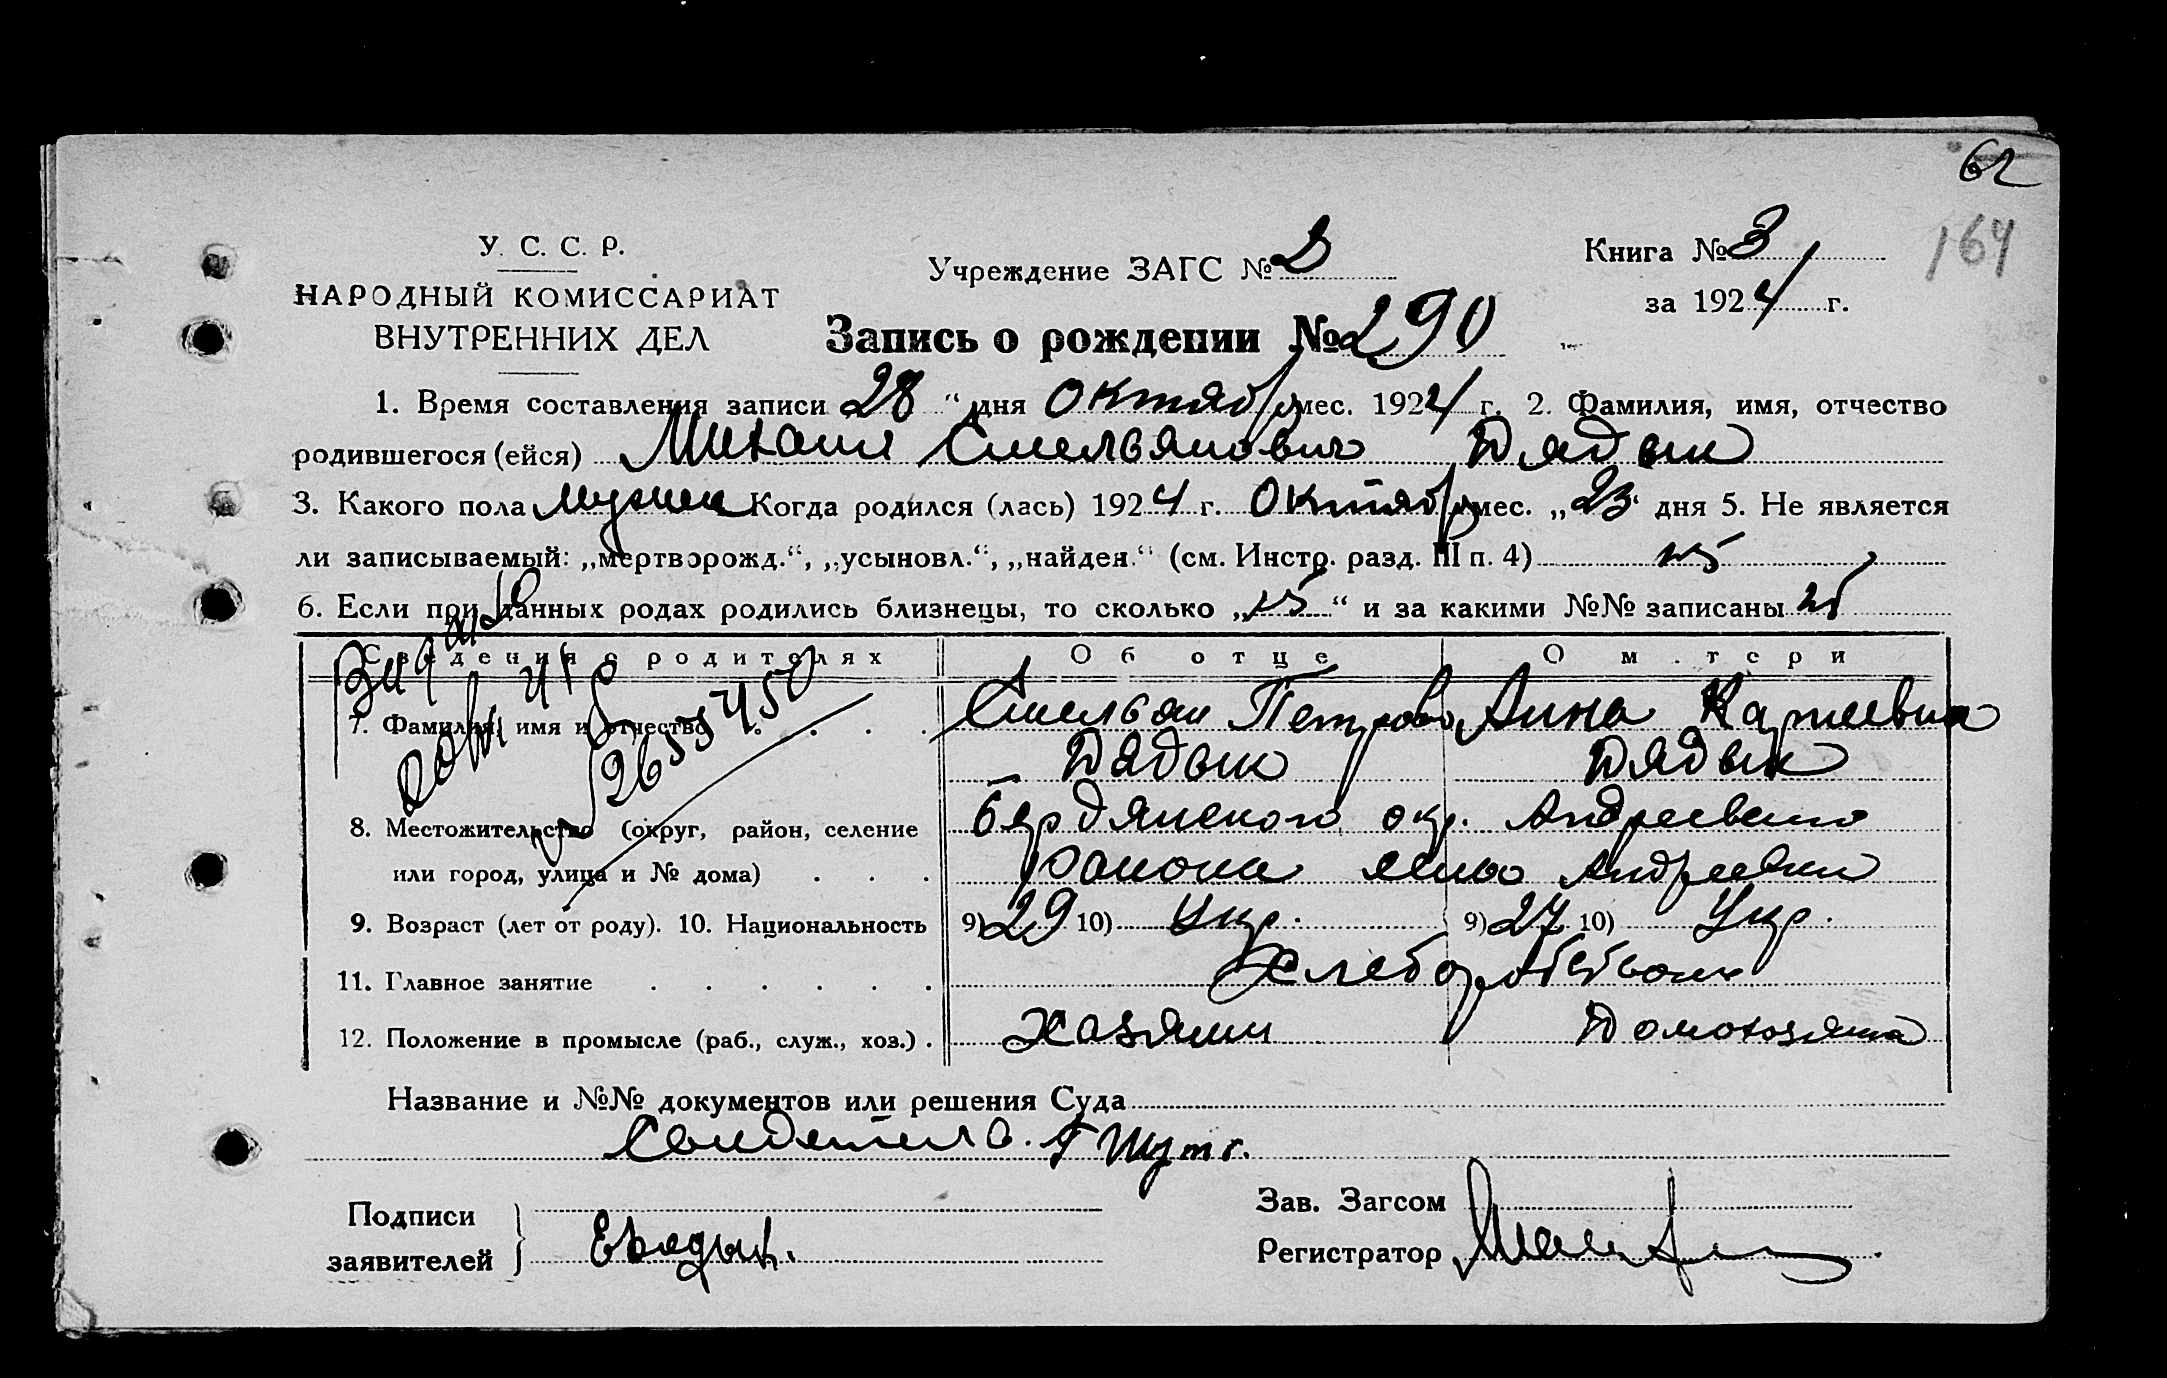 62
164
У. С. С. Р.
НАРОДНЫЙ КОМИССАРИАТ
ВНУТРЕННИХ ДЕЛ
Учреждение ЗАГС №
Книга № 3
за 1924 г.
Запись о рождении № 290
1. Время составления записи 28 " дня Октября мес. 1924 г. 2. Фамилия, имя, отчество
родившегося (ейся) Михаил Емельянович Дядык
3. Какого пола мужск Когда родился (лась) 1924 г. Октябр мес. „23" дня 5. Не является
ли записываемый: „мертворожд.", „усыновл.", „найден." (см. Инстр. разд. III п. 4)
6. Если при данных родах родились близнецы, то сколько „ " и за какими №№ записаны
Сведения о родителях Об отце О матери
7. Фамилия, имя и отчество Емельян Петрово Анна Карпеевна
Дядык Дядык
8. Местожительство (округ, район, селение Бердянского окр. Андреевского
или город, улица и № дома) района село Андреевки
9. Возраст (лет от роду). 10. Национальность 9) 29 10) Укр. 9) 27 10) Укр.
11. Главное занятие Хлеборобством
12. Положение в промысле (раб., служ., хоз.) Хазяин Домохозяйка
Название и №№ документов или решения Суда
Подписи
заявителей ЕДядык.
Зав. Загсом
Регистратор